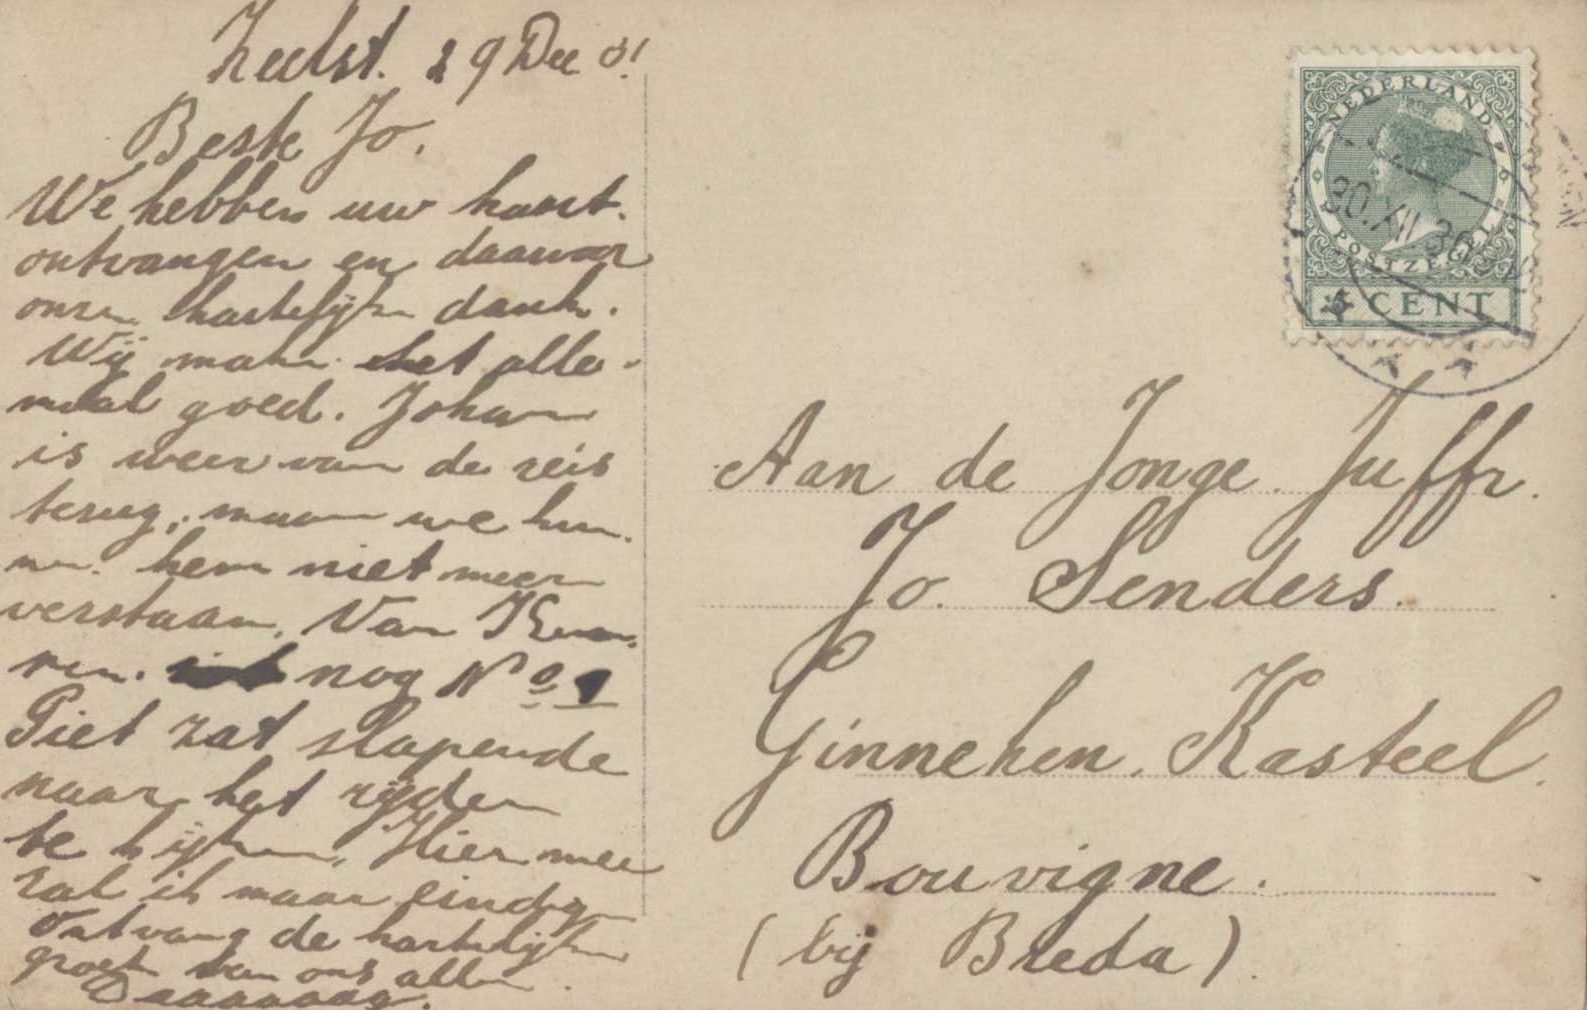 Zeelst. 29 Dec
Beste Jo.
We hebben uw kaart.
ontvangen en daarvoor
onze hartelijke dank.
Wij maken het alle-
maal goed. Johan
is weer van de reis
terug, maar we kun-
nen hem niet meer
verstaan. Van
nog No 1
Piet zat slapende
naar het rijden
te kijken. Hier mee
zal ik maar eindigen
Ontvang de hartelijke
groet van ons allen.
Daaaaaaag.
NEDERLAND
POSTZEGEL
CENT
30.XII 36
Aan de Jonge Juffr.
Jo. Senders.
Ginneken. Kasteel.
Bouvigne.
(bij Breda).